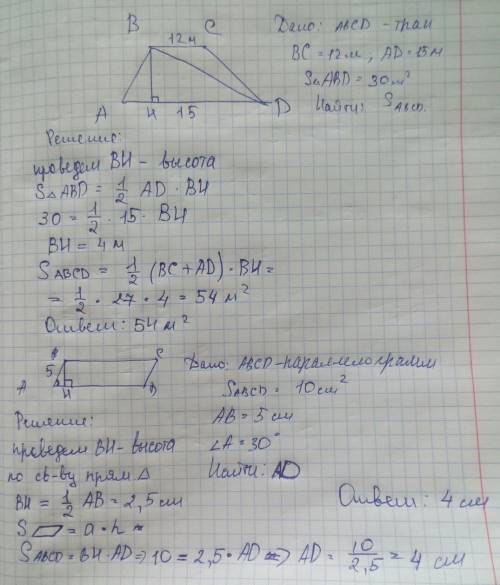 B C
12м
A H 15 D
Дано: ABCD - трап
BC = 12м, AD = 15м
S△ABD = 30м²
Найти: SABCD.
Решение:
проведем BH - высота
S△ABD = 1/2 AD · BH
30 = 1/2 · 15 · BH
BH = 4 м
SABCD = 1/2 (BC + AD) · BH =
= 1/2 · 27 · 4 = 54 м²
Ответ: 54 м²
B C
5
A H D
Дано: ABCD - параллелограмм
SABCD = 10 см²
AB = 5 см
∠A = 30°
Найти: AD
Решение:
проведем BH - высота
по св-ву прям △
BH = 1/2 AB = 2,5 см
S▱ = a · h
SABCD = BH · AD ⇒ 10 = 2,5 · AD ⇒ AD = 10/2,5 = 4 см
Ответ: 4 см